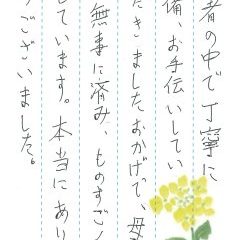 者の中で丁寧に
備、お手伝いしてい
だきましたおかげで、母
無事に済み、ものすごく
しています。本当にあり
うございました。